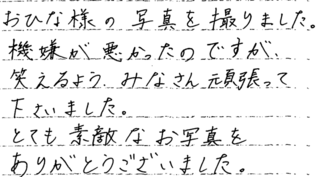 おひな様の写真を撮りました。
機嫌が悪かったのですが、
笑えるよう みなさん 頑張って
下さいました。
とても素敵なお写真を
ありがとうございました。